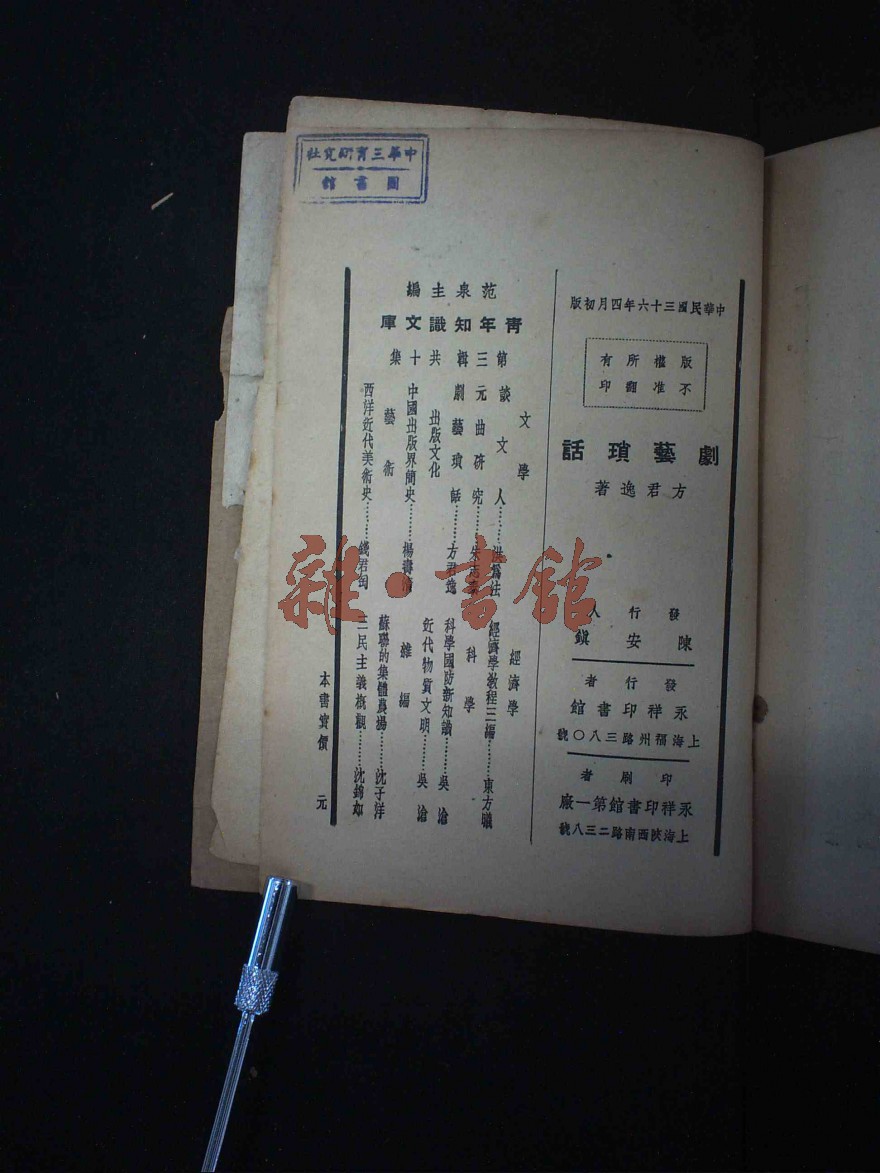 中華三育研究社
圖書館
中華民國三十六年四月初版
版權所有
不准翻印
劇藝瑣話
方君逸著
發行人
陳安鎮
發行者
永祥印書館
上海福州路三八〇號
印刷者
永祥印書館第一廠
上海陝西南路二三八號
范泉主編
青年知識文庫
第三輯共十集
文學
談文人……洪為法
元曲研究……朱志泰
劇藝瑣話……方君逸
出版文化
中國出版界簡史……楊壽清
藝術
西洋近代美術史……錢君匋
經濟學
經濟學教程三編……東方曦
科學
科學國防新知識……吳滄
近代物質文明……吳滄
雜編
蘇聯的集體農場……沈子洋
三民主義概觀……沈錦如
本書實價 元
雜·書館